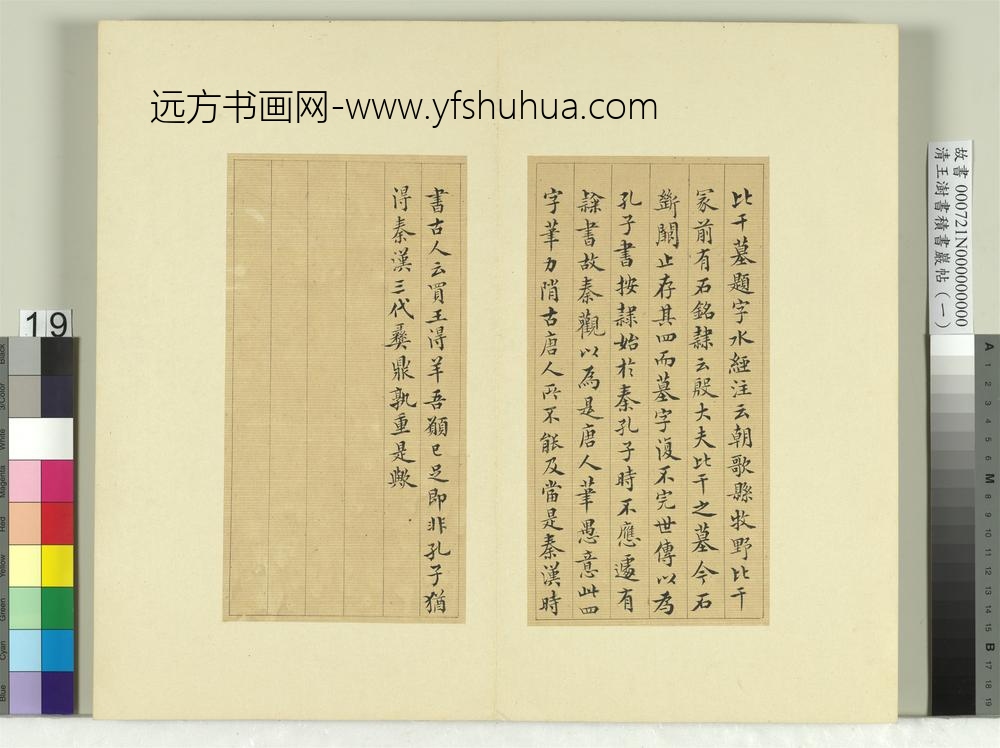 远方书画网-www.yfshuhua.com
比干墓題字水經注云朝歌縣牧野比干
冢前有石銘隸云殷大夫比干之墓今石
斷闕止存其四而墓字復不完世傳以為
孔子書按隸始於秦孔子時不應遽有
隸書故秦觀以為是唐人筆愚意此四
字筆力陗古唐人所不能及當是秦漢時
書古人云買王得羊吾願已足即非孔子猶
得秦漢三代彝鼎孰重是歟
故書 000721N000000000
清王澍書積書巖帖（一）
19
Black
3/Color
White
Magenta
Red
Yellow
Green
Cyan
Blue
A
1
2
3
4
5
M
8
9
10
11
12
13
14
15
B
17
18
19